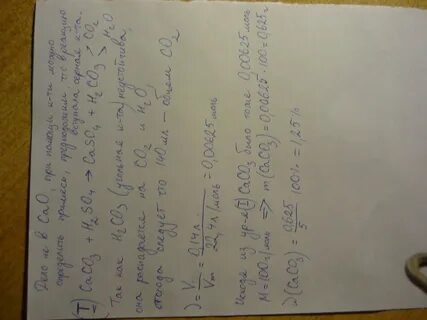 Дело не в CaO, при помощи к-ты можно
определить примеси, предположим что в реакцию
вступила серная к-та.
(I) CaCO₃ + H₂SO₄ → CaSO₄ + H₂CO₃ → CO₂ H₂O
Так как H₂CO₃ (угольная к-та) неустойчива,
она распадается на CO₂ и H₂O,
отсюда следует что 140 мл – объем CO₂
ν = V/Vm = 0,14 л / 22,4 л/моль = 0,00625 моль
Исходя из ур-я (I) CaCO₃ было тоже 0,00625 моль
M = 100 г/моль ⇒ m(CaCO₃) = 0,00625·100 = 0,625 г
ω(CaCO₃) = 0,625/5 · 100% = 1,25%